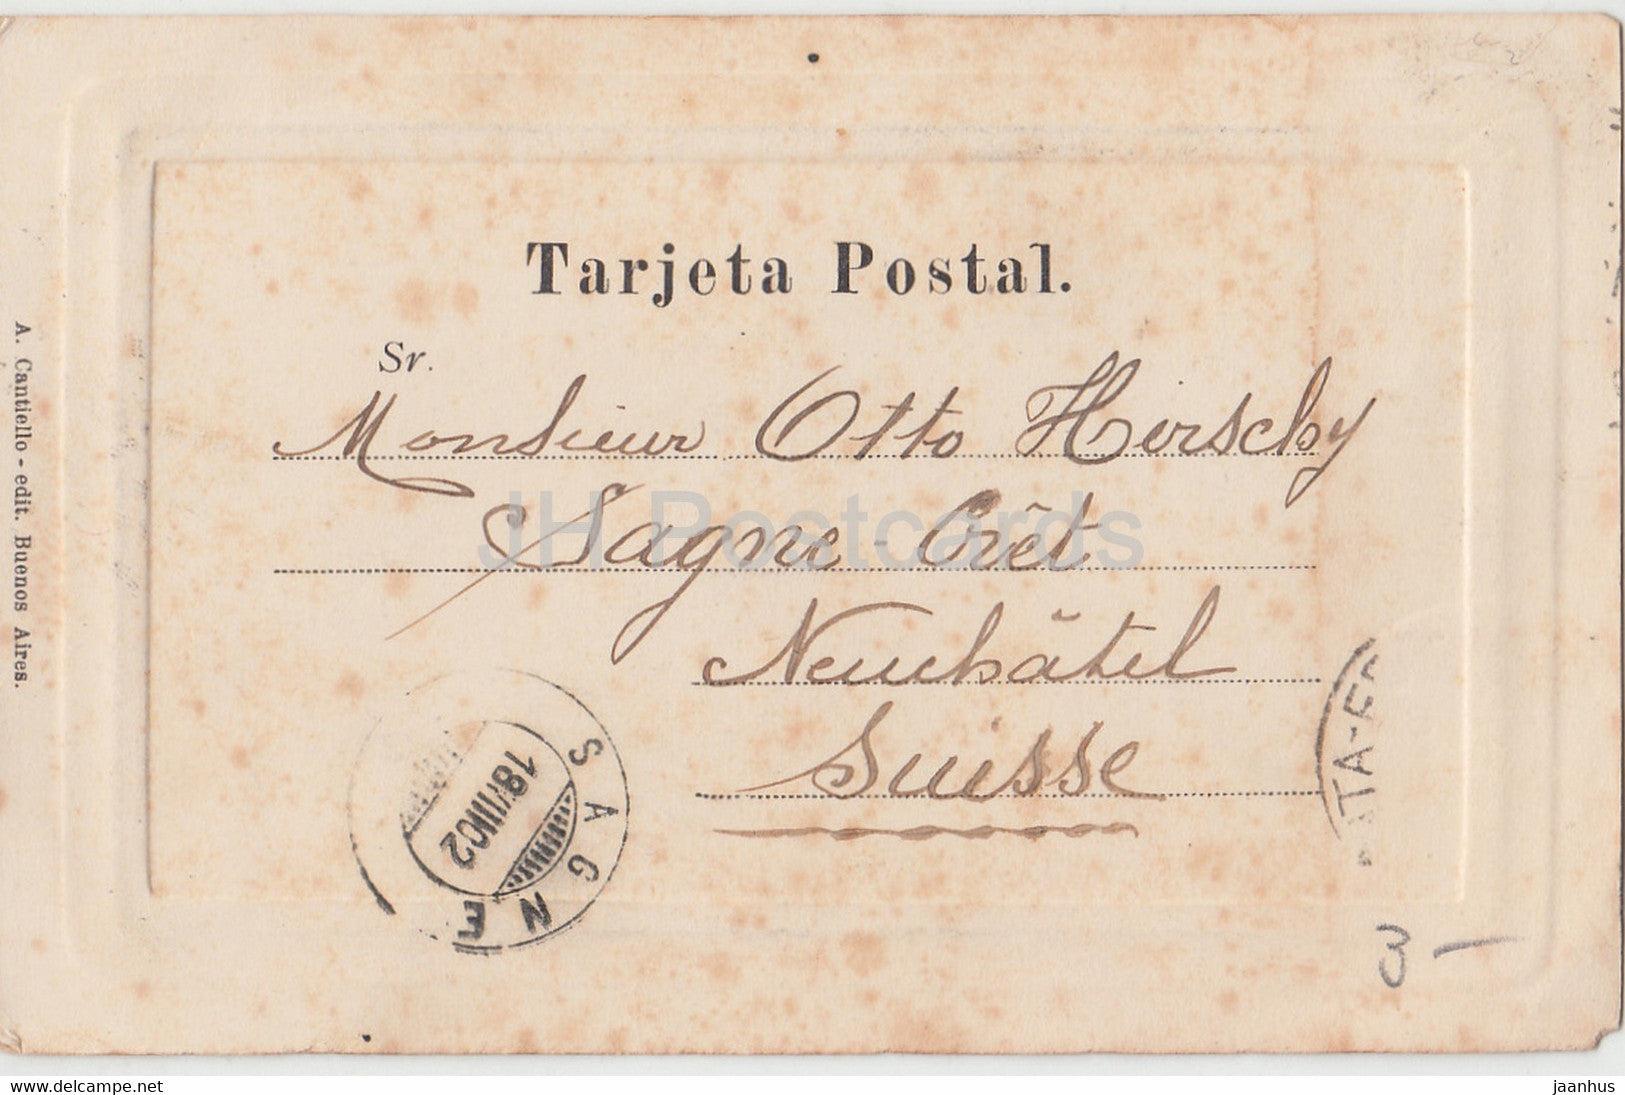 Tarjeta Postal.
Sr.
Monsieur Otto Hirschy
Sagne-Crêt
Neuchâtel
Suisse
A. Cantiello - edit. Buenos Aires.
SAGNE
18 VIII 02
TA-F
3 -
JH Postcards
www.delcampe.net
jaanhus